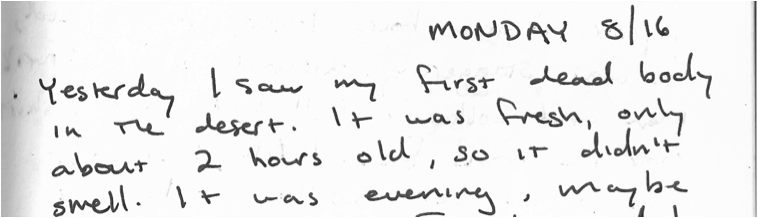 MONDAY 8/16
. Yesterday I saw my first dead body
in the desert. It was fresh, only
about 2 hours old, so it didn't
smell. It was evening, maybe